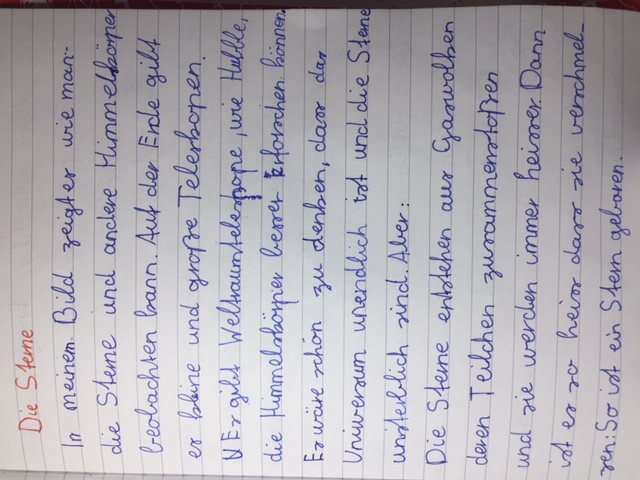 Die Sterne
In meinem Bild zeigter wie man
die Sterne und andere Himmelskörper
beobachten kann. Auf der Erde gibt
es kleine und große Teleskopen.
Es gibt Weltraumteleskope, wie Hubble,
die Himmelskörper besser erforschen können.
Es wäre schön zu denken, dass das
Universum unendlich ist und die Sterne
unsterblich sind. Aber:
Die Sterne entstehen aus Gaswolken
deren Teilchen zusammenstoßen
und sie werden immer heisser. Dann
ist es so heiss dass sie verschmel-
zen: So ist ein Stern geboren.